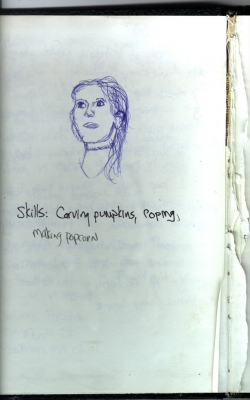 Skills: Carving pumpkins, roping,
making popcorn